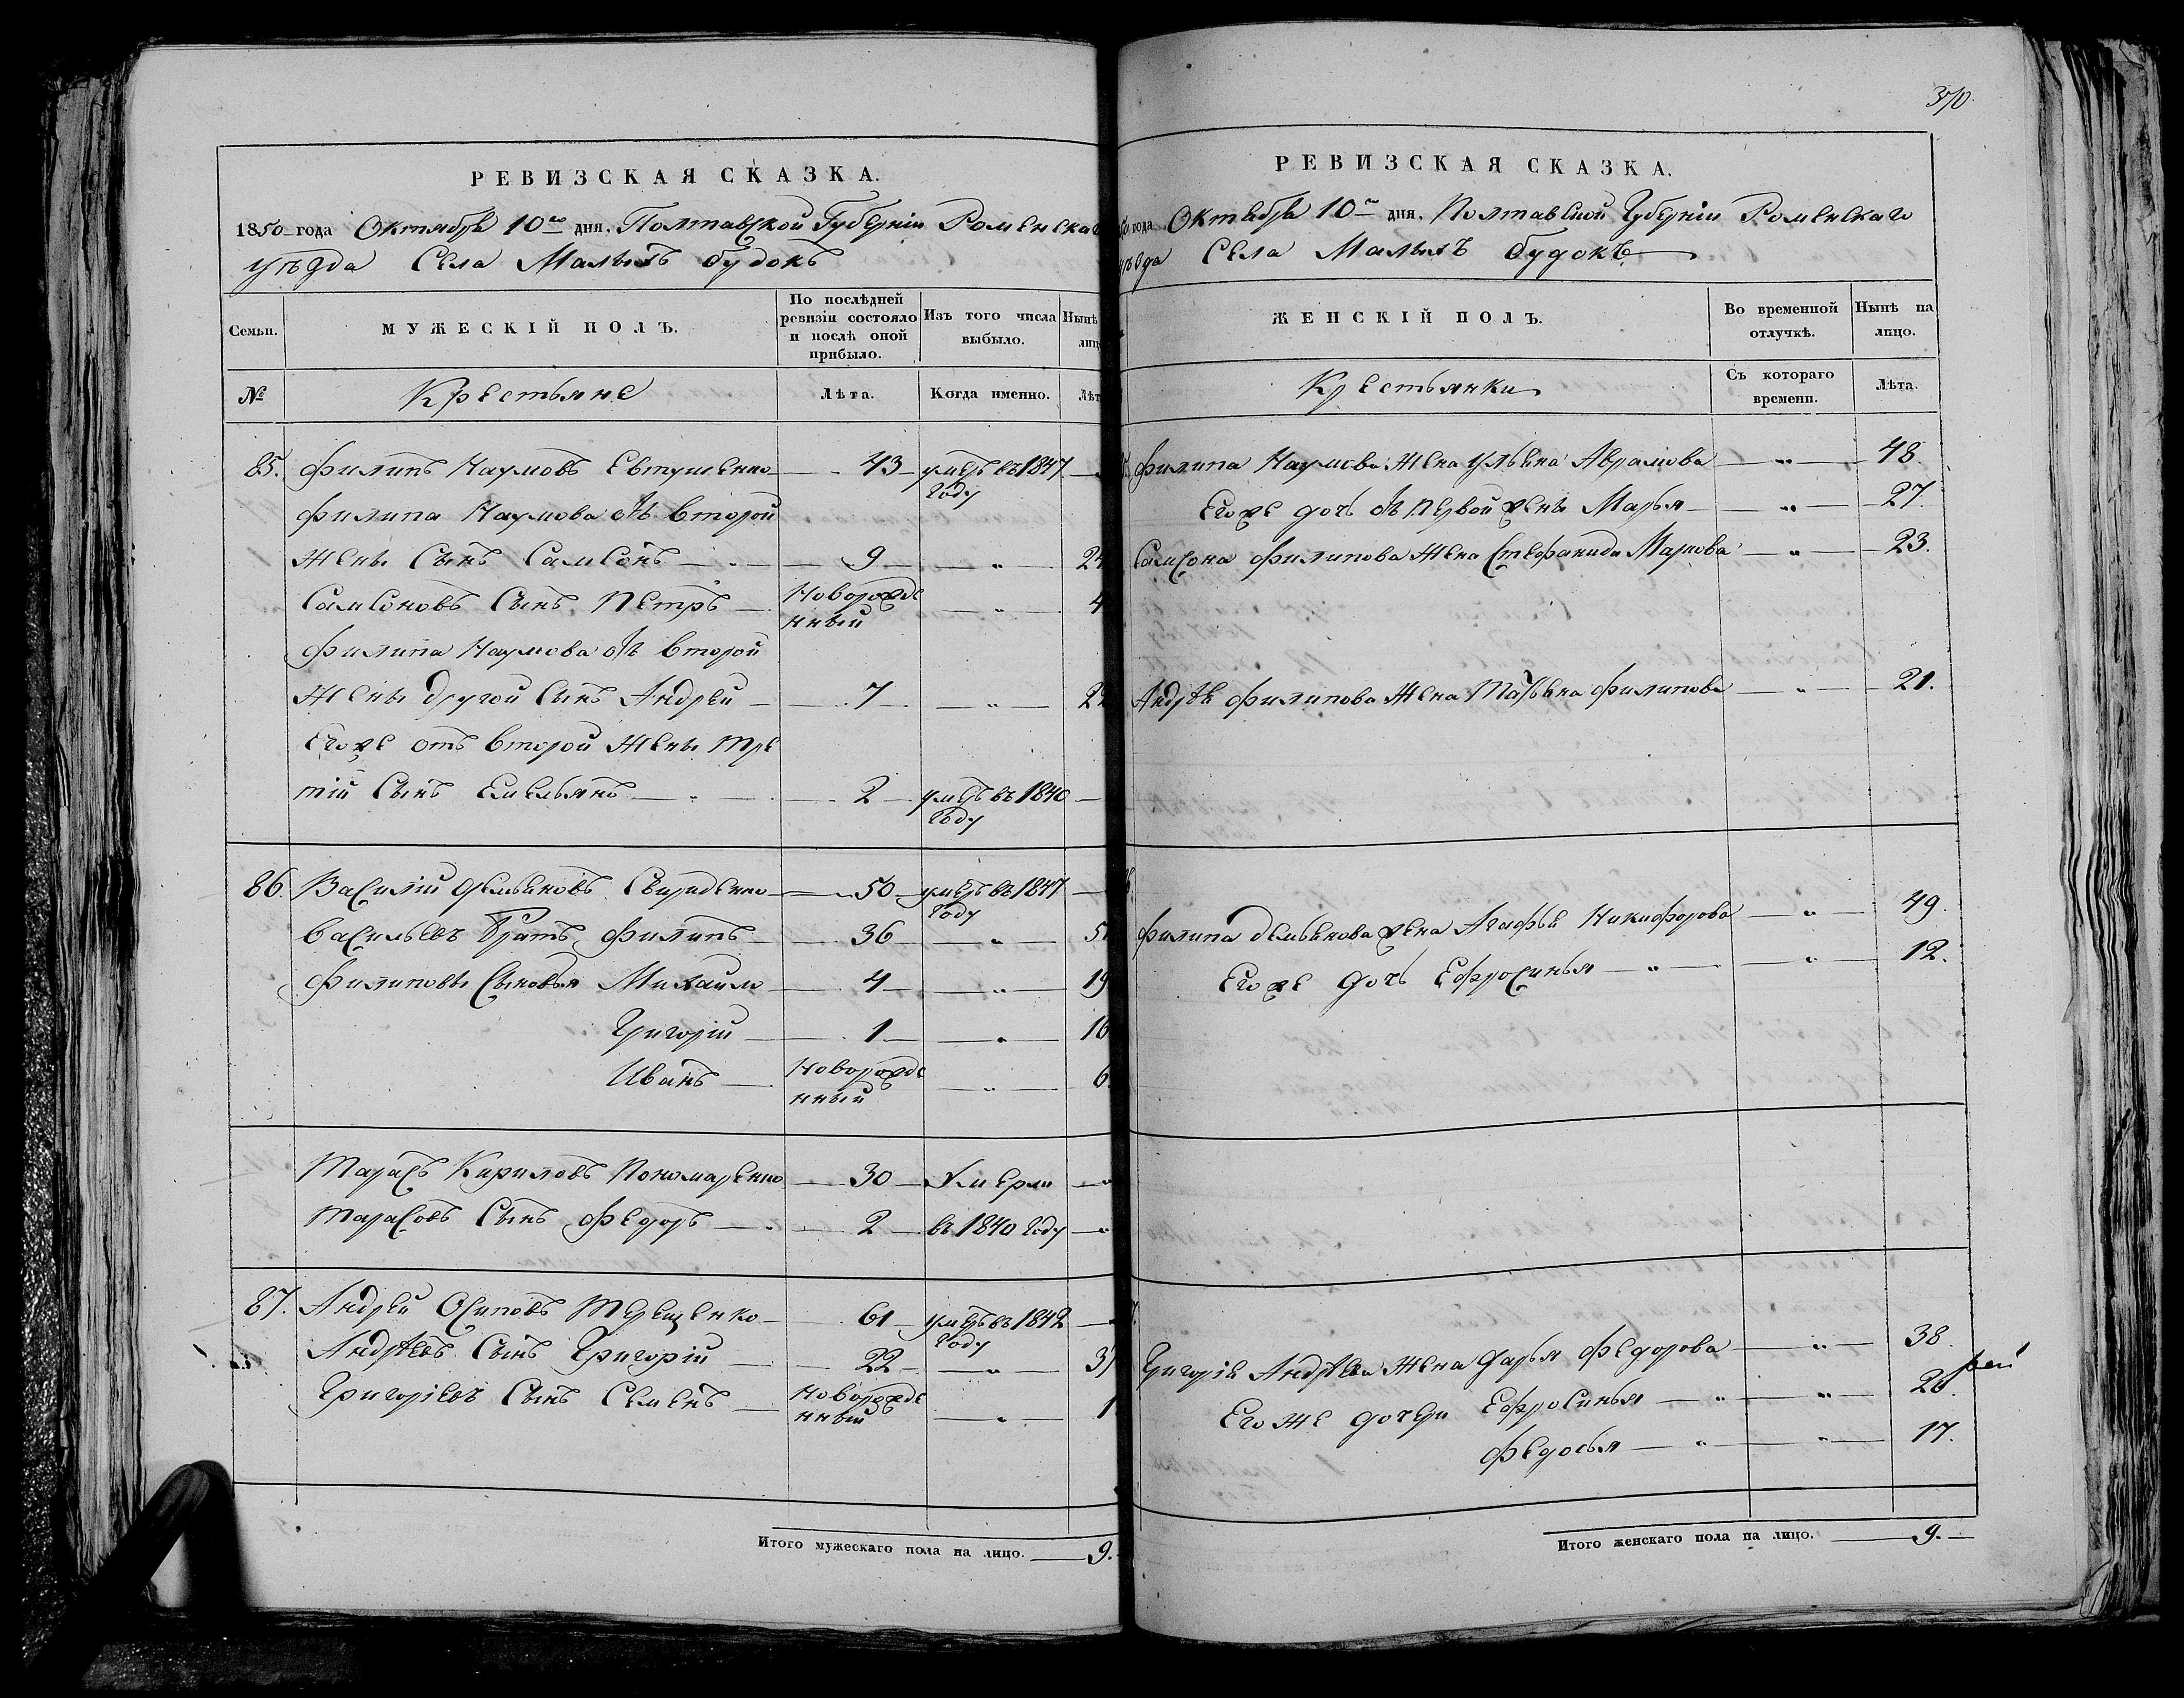 РЕВИЗСКАЯ СКАЗКА.
1850 года Октября 10го дня, Полтавской Губерніи Роменскаг
уѣзда Села Малыхъ будокъ
Семьи.
МУЖЕСКІЙ ПОЛЪ.
По послѣдней ревизіи состояло и послѣ оной прибыло.
Изъ того числа выбыло.
Нынѣ лиц
№
Крестьяне
Лѣта.
Когда именно.
Лѣт
85. Филипъ Наумовъ Евтушенко 43 умеръ въ 1847 году
Филипа Наумова отъ второй
жены Сынъ Самсонъ 9 24
Самсоновъ Сынъ Петръ Новорожденный 4
Филипа Наумова отъ второй
жены другой Сынъ Андрей 7 22
Егоже отъ второй жены тре
тій Сынъ Емельянъ 2 умеръ въ 1840 году
86. Василій Демьяновъ Свириденко 50 умеръ въ 1847 году
Васильевъ братъ Филипъ 36 51
Филиповы Сыновья Михайло 4 19
Григорій 1 16
Иванъ Новорожденный 6
Тарасъ Кириловъ Пономаренко 30 Умерли
Тарасовъ Сынъ Федоръ 2 въ 1840 году
87. Андрей Осиповъ Терещенко 61 умеръ въ 1842 году
Андрѣевъ Сынъ Григорій 22 37
Григоріевъ Сынъ Семенъ Новорожденный 1
Итого мужескаго пола на лицо. 9.
370
РЕВИЗСКАЯ СКАЗКА.
50 года Октября 10го дня, Полтавской Губерніи Роменскаго
уѣзда Села Малыхъ будокъ
ЖЕНСКІЙ ПОЛЪ.
Во временной отлучкѣ.
Нынѣ на лицо.
Крестьянки
Съ котораго времени.
Лѣта.
Филипа Наумова жена Ульяна Аврамова 48.
Егоже дочь отъ первой жены Марья 27.
Самсона Филипова жена Стефанида Маркова 23.
Андрѣя Филипова жена Татьяна Филипова 21.
Филипа Демьянова жена Агафья Никифорова 49.
Егоже дочь Ефросинья 12.
Григорія Андрѣева жена Дарья Федорова 38.
Егоже дочери Ефросинья 20.
Федосья 17.
Итого женскаго пола на лицо. 9.